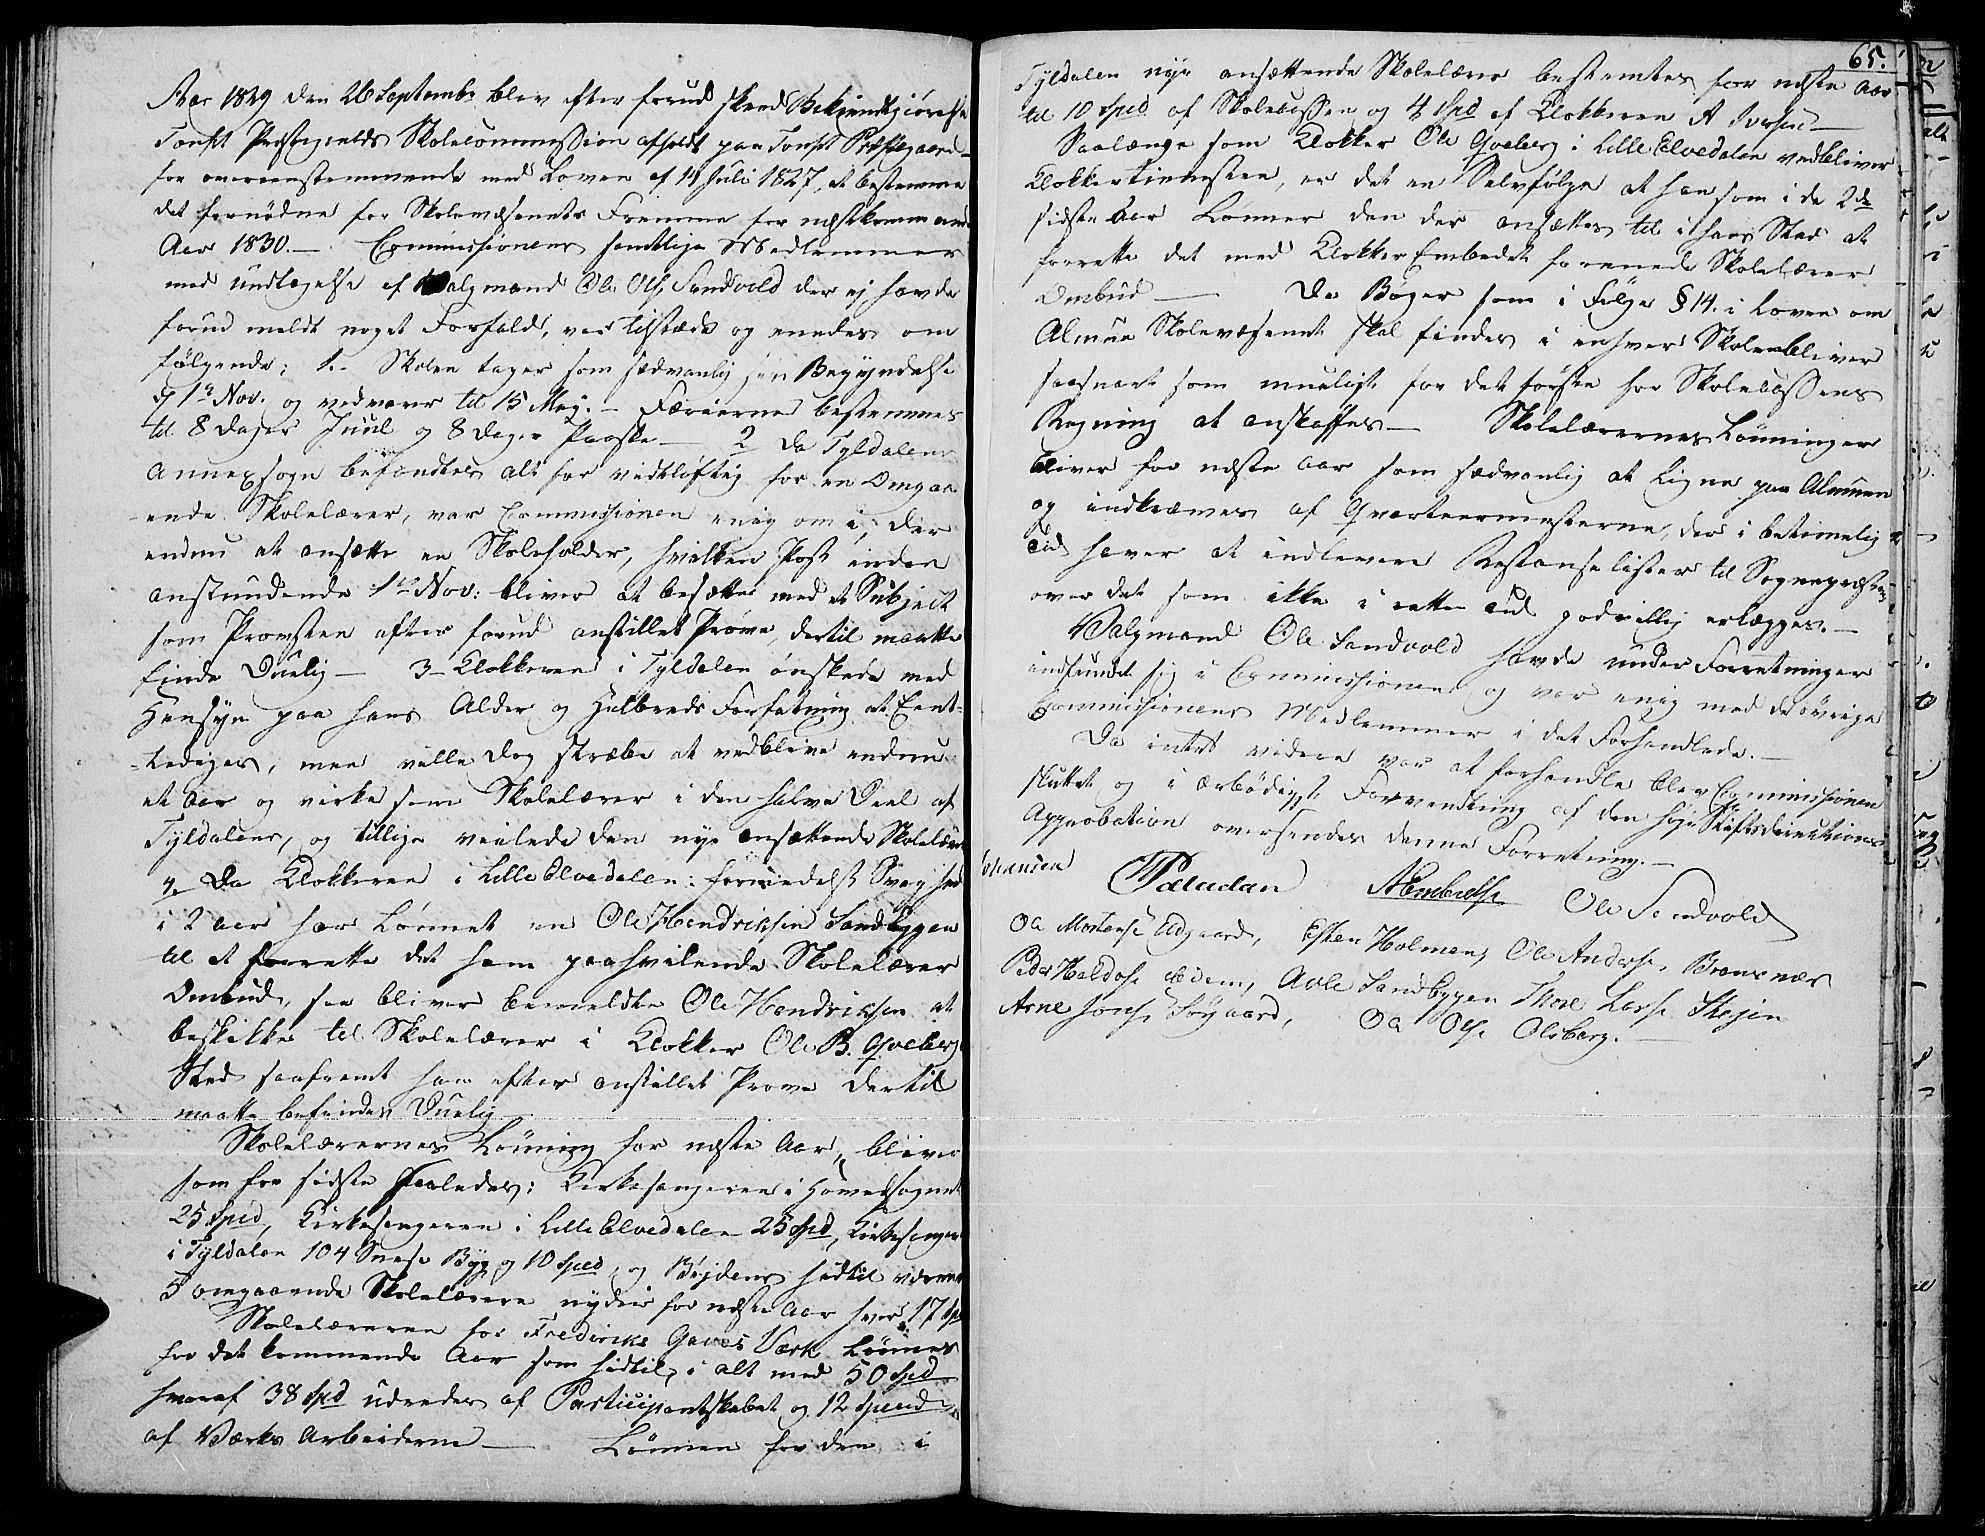 Aar 1829 den 26 Septembr blev efter forud skeed Bekjendtgiørelse
Tonset Præstegjelds Skolecommission afholdt paa Tonset Præstegaard
for overeensstemmende med Loven af 14 Juli 1827, at bestemme
det fornødne for Skolevæsenets Fremme for næstkommende
Aar 1830. – Commissionens samtlige Medlemmer
med undtagelse af Valgmand Ole Ols. Sandvold der ej havde
forud meldt noget Forfald, var tilstæde og enedes om
følgende: 1. Skolen tager som sædvanlig sin Begyndelse
d 1ste Nov. og vedvarer til 15 May. – Færierne bestemmes
til 8 Dager Juul og 8 Dage Paaske – 2 Da Tyldalens
Annexsogn befandtes alt for vidtløftig for en Omgaa
ende Skolelærer, var Commissionen enig om, i der
endnu at ansætte en Skoleholder, hvilken Post inden
anstundende 1ste Nov: bliver at besætte med et Subject
som Provsten efter forud anstillet Prøve, dertil maatte
finde Duelig – 3 – Klokkeren i Tyldalen ønskede med
Hensyn paa hans Alder og Helbreds Forfatning at Ent-
lediges, men vilde dog stræbe at vedblive endnu
et Aar og virke som Skolelærer i den halve Deel af
Tyldalens, og tillige veilede den nye ansættende Skolelærer
4. Da Klokkeren i Lille Elvedalen formedelst Svaghed
i 2 Aar har Lønnet en Ole Hendriksen Sandbyggen
til at forrette det ham paahvilende Skolelærer
Ombud, saa bliver bemeldte Ole Hendriksen at
beskikke til Skolelærer i Klokker Ole B. Qveberg
Sted saafremt han efter anstillet Prøve dertil
maatte befindes Duelig
Skolelærernes Lønning for næste Aar, bliver
som for sidste saaledes: Kirkesangeren i Hovedsognet
25 Spd, Kirkesangeren i Lille Elvedalen 25 Spd, Kirkesanger
i Tyldalen 104 Snese Byg og 10 Sped, og Bøjdens hidtil værende
5 omgaaende Skolelærere nyder for næste Aar hver 17 Sp
Skolelæreren for Frederiks Gaves Værk Lønnes
for det kommende Aar som hidtil, i alt med 50 Spd
hvoraf 38 Spd udredes af Participantskabet og 12 Speed
af Værks Arbeiderne – Lønnen for den i
65.
Tyldalen nye ansættende Skolelærer bestemtes for næste Aar
til 10 Sped af Skolecassen og 4 Spd af Klokkeren A Iversen –
Saalænge som Klokker Ole Qveberg i Lille Elvedalen vedbliver
Klokkertienesten, er det en Selvfølge at han som i de 2de
sidste Aar Lønner den der ansættes til i hans Sted at
forrette det med KlokkerEmbedet forenede Skolelærer
Ombud – De Bøger som i Følge § 14. i Loven om
Almue Skolevæsenet skal findes i enhver Skole bliver
saasnart som mueligt for det første for Skolecassens
Regning at anskaffes – Skolelærernes Lønninger
bliver for næste Aar som sædvanlig at Ligne paa Almuen
og indkræves af Qvarteermesterne, der i betimelig
Tid haver at indlevere Restanselister til Sognepræsten
over det som ikke i rette Tid godvillig erlægges. –
Valgmand Ole Sandvold havde under Forretningen
indfundet sig i Commissionen og var enig med de øvrige
Commissionens Medlemmer i det Forhandlede. –
Da intet videre var at forhandle blev Commissionen
sluttet og i ærbødigst Forventning af den høje Stiftsdirections
Approbation oversendes denne Forretning. –
Paludan AEmbretse Ole Sendvold
Ole Mortense Eidgaard, Esten Holmen, Ole Anderse. Bronsnæs
Peder Haldose Eidem, Avle Sandbyggen Thore Larse Stejen
Arne Jonse Søgaard, Ole Olse Olsberg.